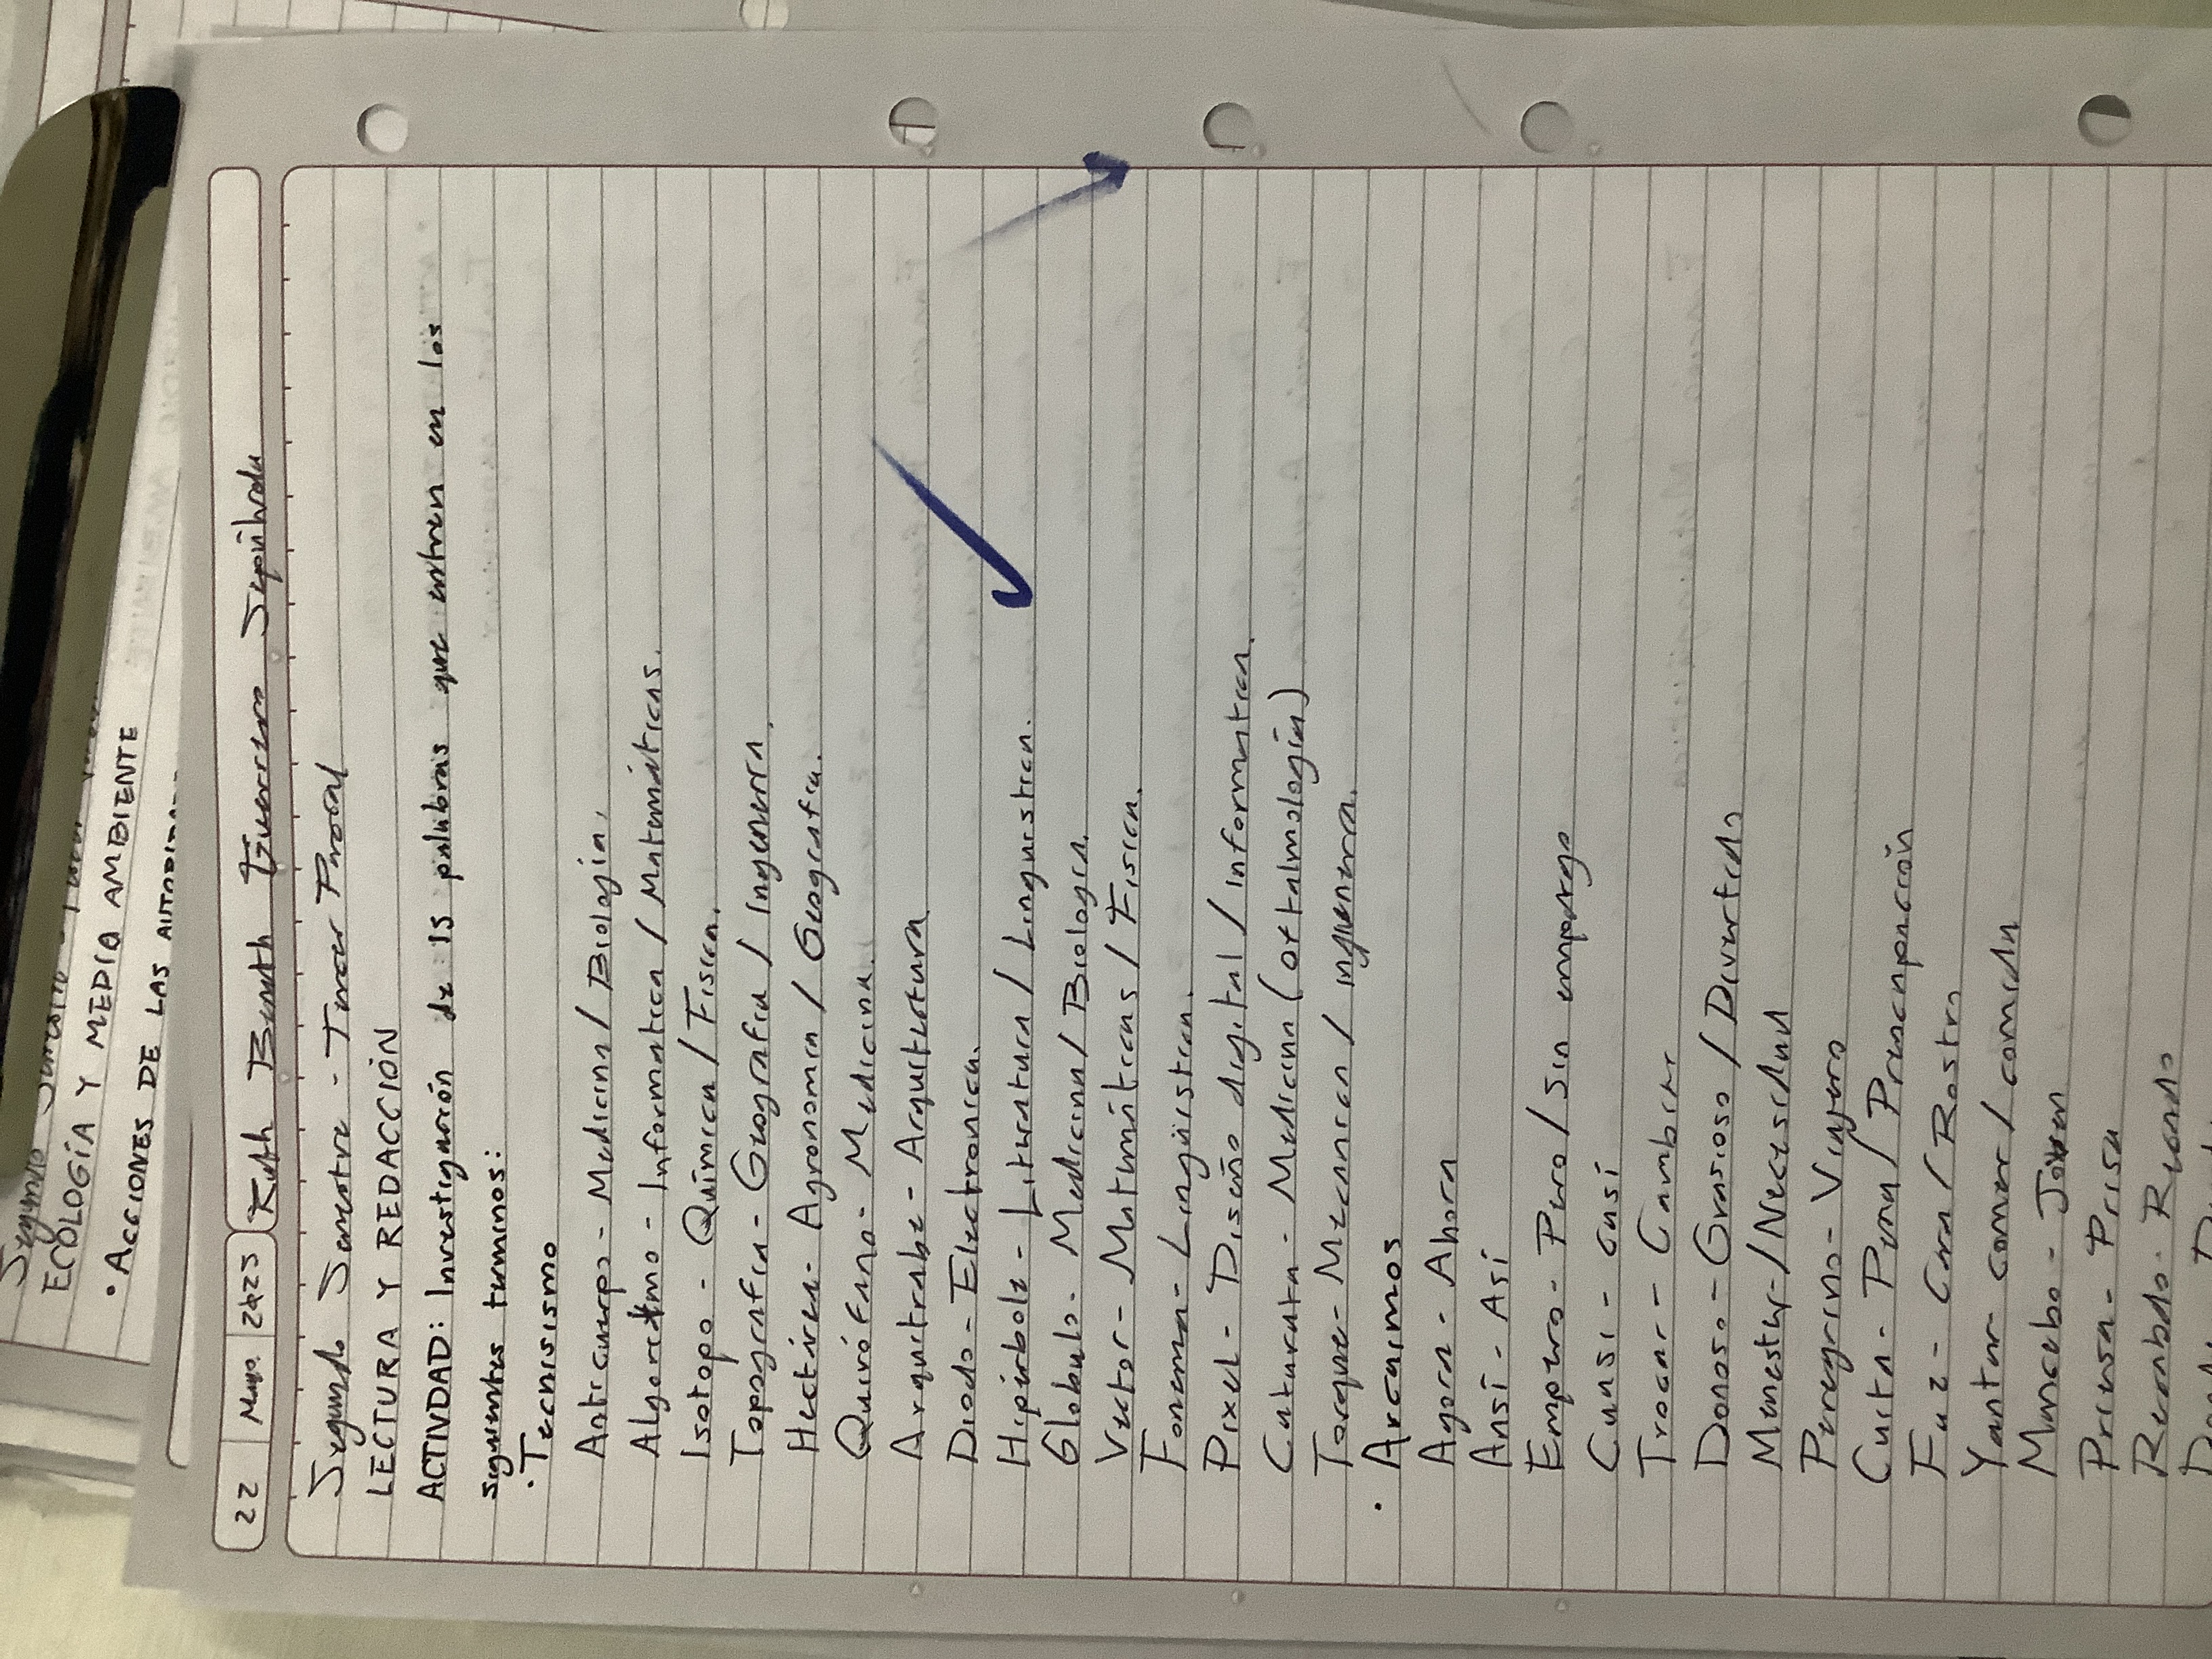 Segundo Semestre - Tercer Parcial
ECOLOGÍA Y MEDIO AMBIENTE
• ACCIONES DE LAS
22 Mayo 2023 Ruth Guerrero Sepúlveda
Segundo Semestre - Tercer Parcial
LECTURA Y REDACCIÓN
ACTIVIDAD: Investigación de 15 palabras que entren en los
siguientes terminos:
• Tecnisismo
Anticuerpo - Medicina / Biología.
Algoritmo - Informatica / Matemáticas.
Isotopo - Química / Física.
Topografia - Geografia / Ingeneria.
Hectárea - Agronomia / Geografia.
Quirófano - Medicina.
Arquitrabe - Arquitectura
Diodo - Electronica.
Hipérbole - Literatura / Linguistica.
Globulo - Medicina / Biologica.
Vector - Matemáticas / Fisica.
Fonema - Lingüistica.
Pixel - Diseño digital / informatica.
Catarata - Medicina (oftalmología)
Torque - Mecanica / ingeneria.
• Arcaimos
Agora - Ahora
Ansí - Así
Empero - Pero / Sin empargo
Cuasi - casi
Trocar - Cambiar
Donoso - Grasioso / Divertido
Menester / Necesidad
Peregrino - Viajero
Cuita - Pena / Preocupación
Faz - Cara / Rostro
Yantar - comer / comida
Mancebo - Joven
Priesa - Prisa
Recabdo - Recaudo